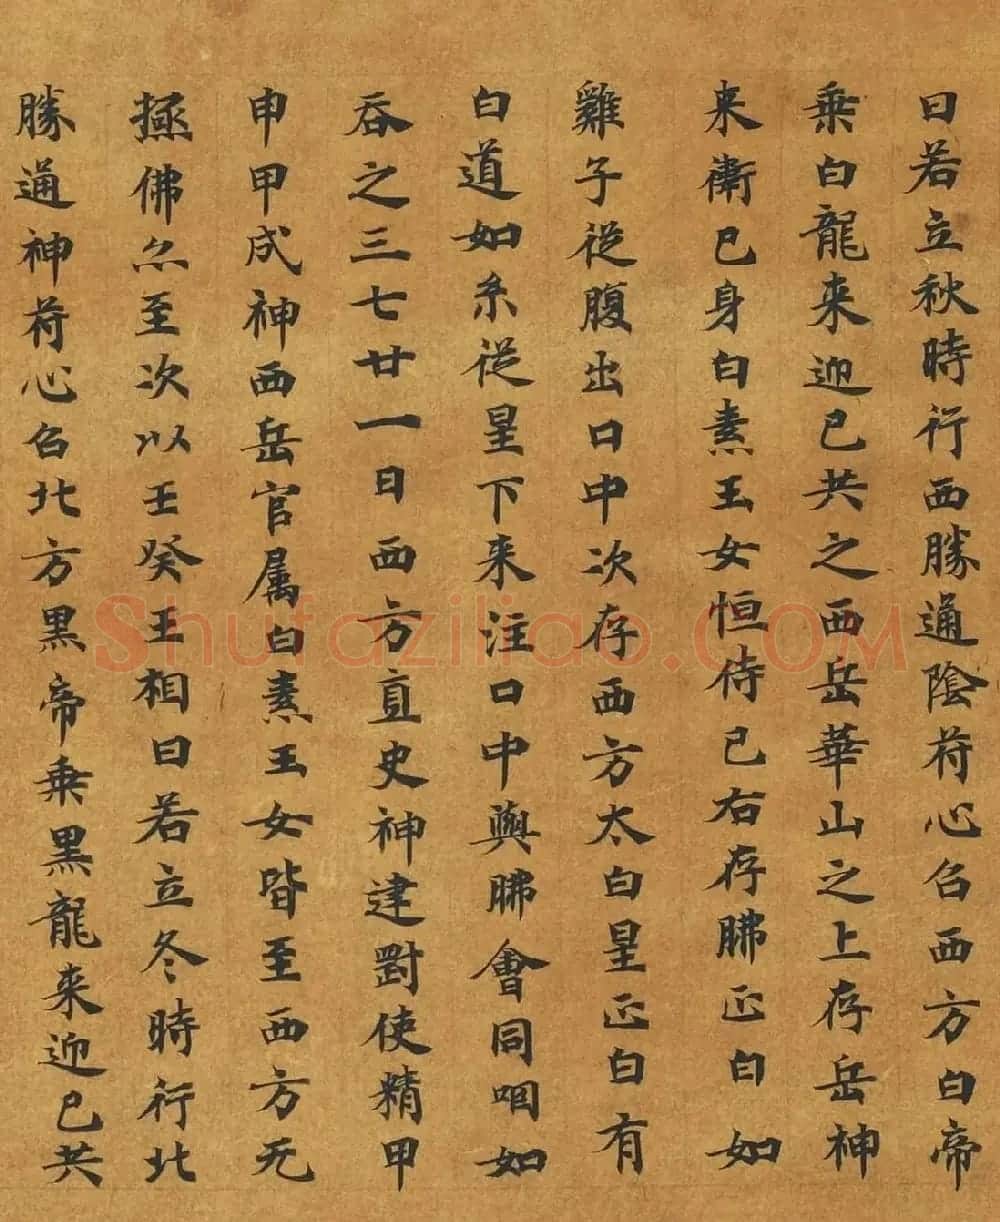 日若立秋時行西勝通陰荷心召西方白帝
乗白龍来迎已共之西岳華山之上存岳神
来衛已身白素玉女恒侍已右存胇正白如
雞子從腹出口中次存西方太白星正白有
白道如糸從星下来注口中與胇會同咽如
吞之三七廿一日西方直史神逮對使精甲
申甲戌神西岳官属白素玉女皆至西方无
極佛亦至次以壬癸王相日若立冬時行北
勝通神荷心召北方黒帝乗黒龍来迎已共
Shufaziliao.COM